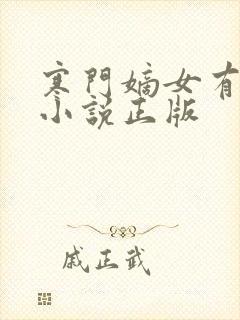 寒門嫡女有
小說正版
戚正武